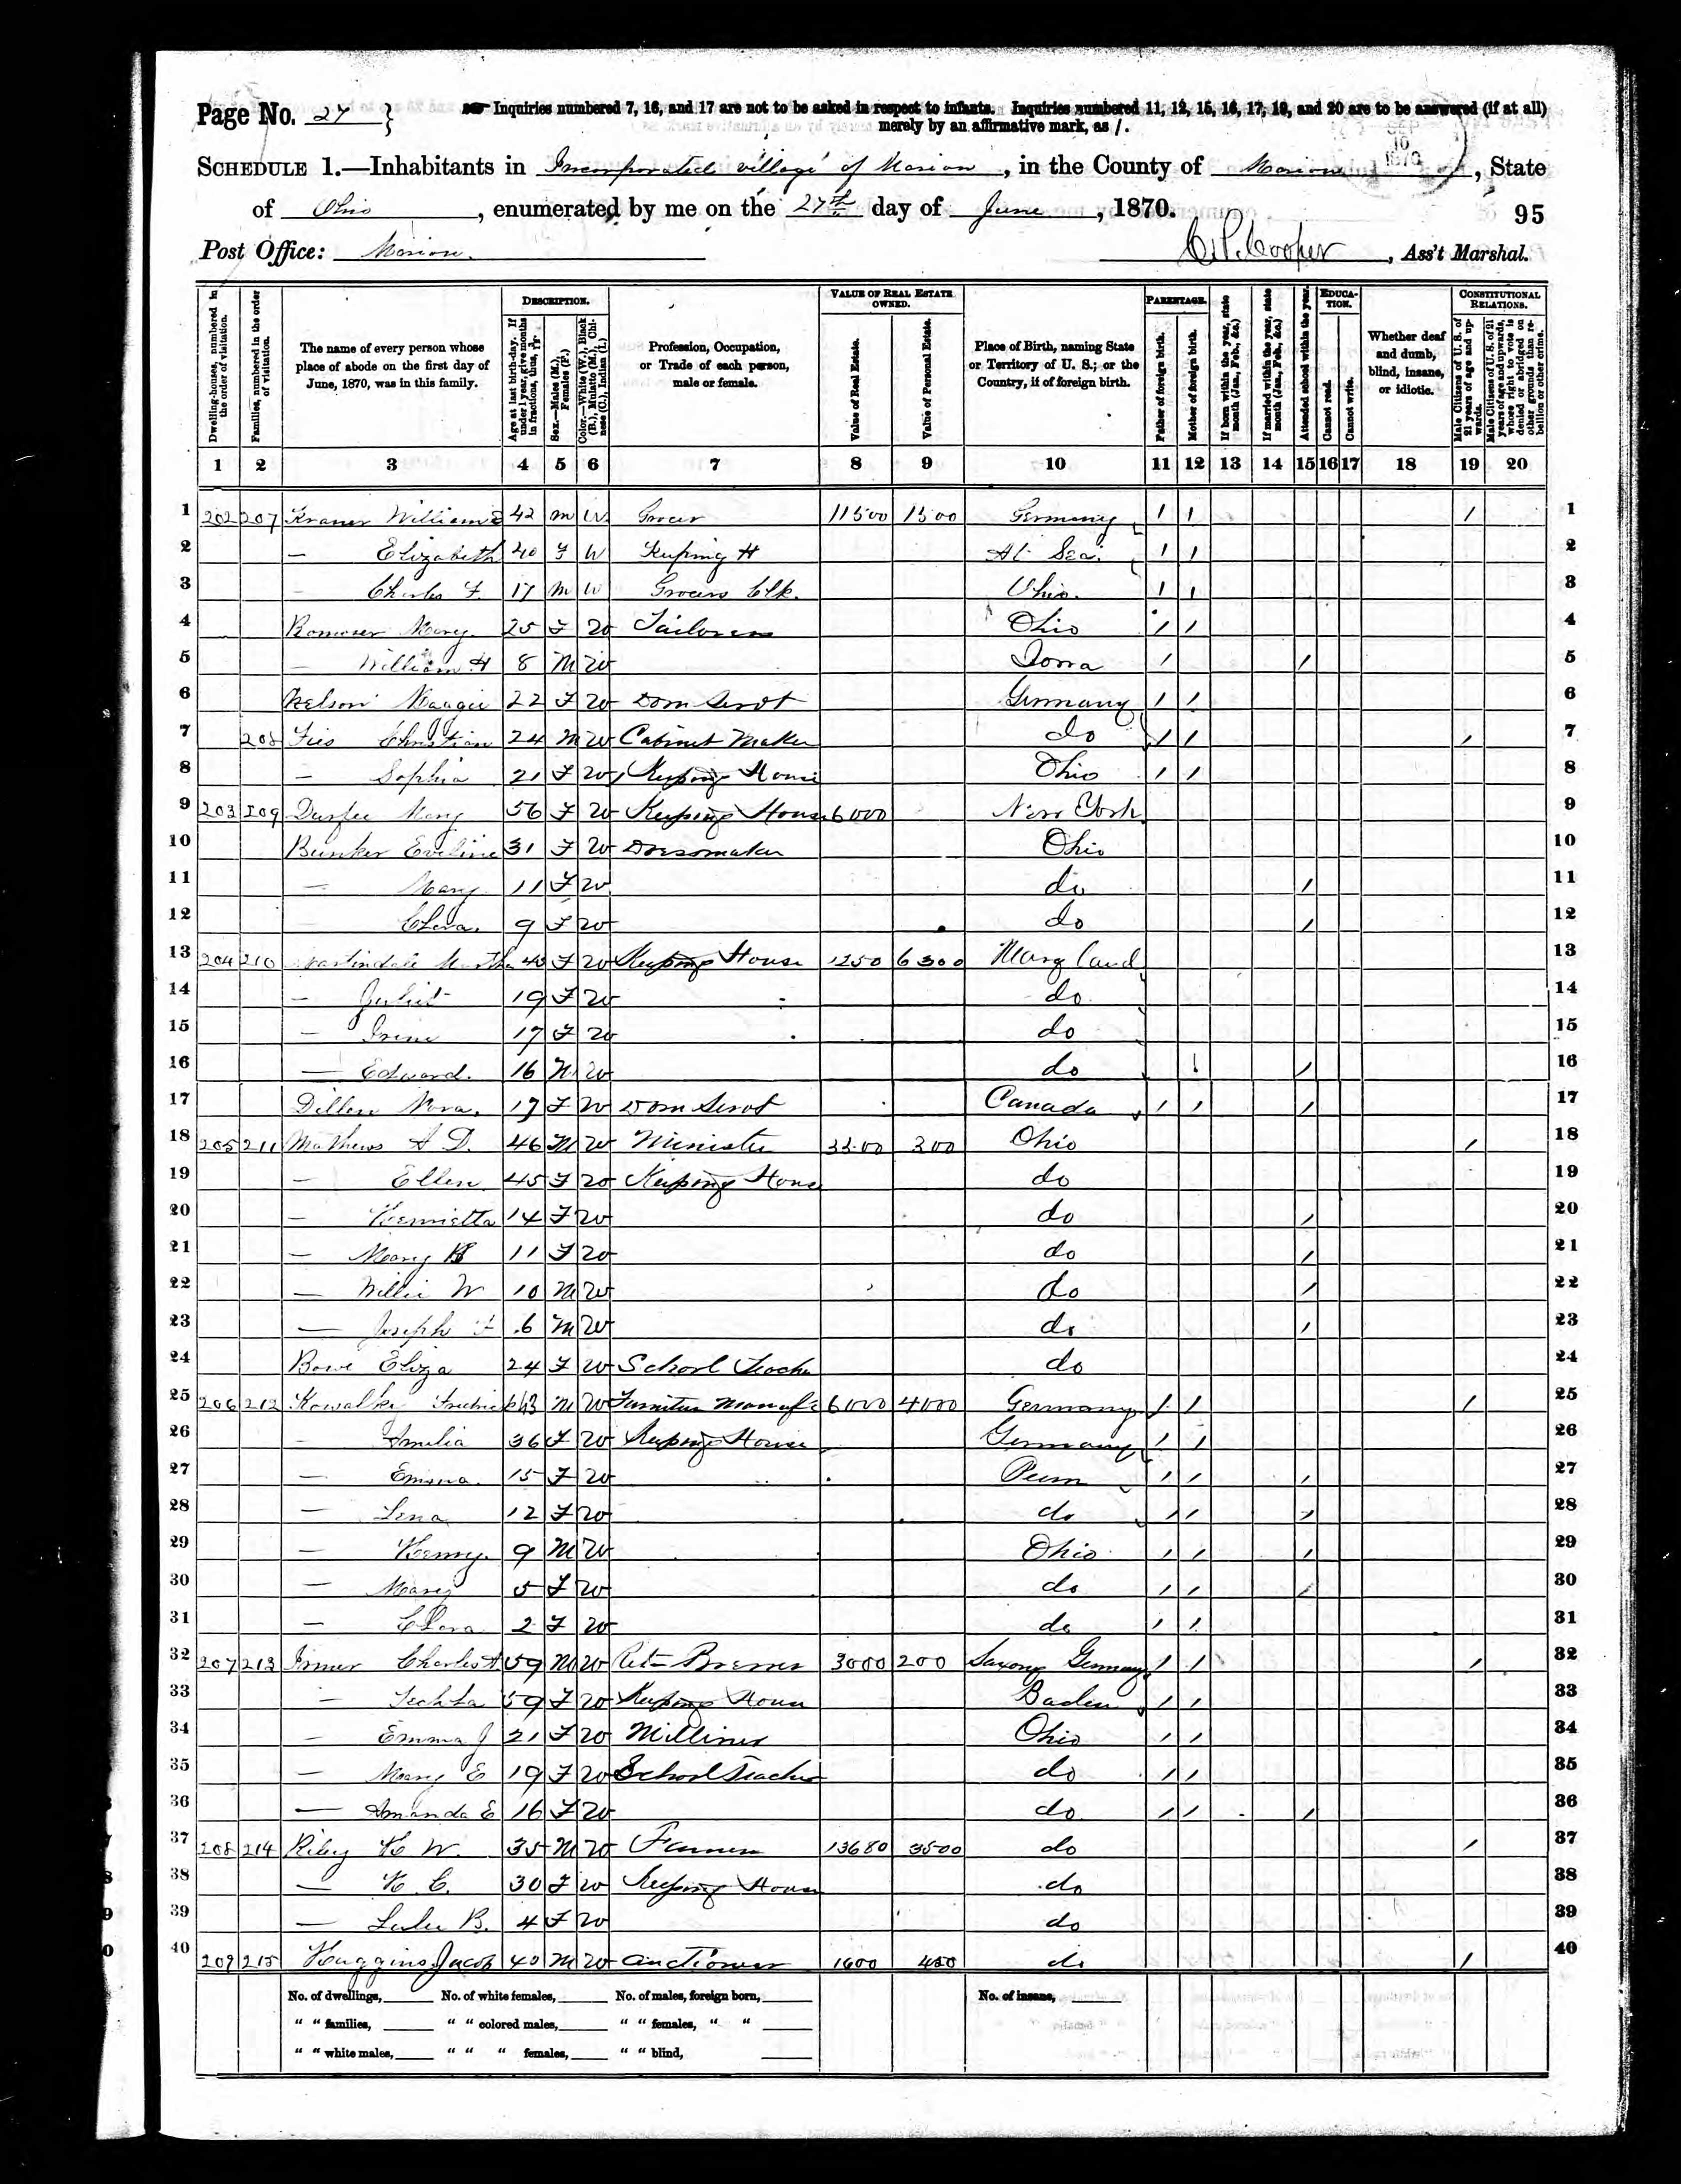 Page No. 27 } Inquiries numbered 7, 16, and 17 are not to be asked in respect to infants. Inquiries numbered 11, 12, 15, 16, 17, 19, and 20 are to be answered (if at all)
merely by an affirmative mark, as /.
SCHEDULE 1.—Inhabitants in Incorporated village of Marion, in the County of Marion, State
of Ohio, enumerated by me on the 27th day of June, 1870. 95
Post Office: Marion. C. P. Cooper, Ass't Marshal.
DESCRIPTION. VALUE OF REAL ESTATE OWNED. PARENTAGE. EDUCATION. CONSTITUTIONAL RELATIONS.
Dwelling-houses, numbered in the order of visitation.
Families, numbered in the order of visitation.
The name of every person whose place of abode on the first day of June, 1870, was in this family.
Age at last birth-day. If under 1 year, give months in fractions, thus, 3/12.
Sex.—Males (M.), Females (F.)
Color.—White (W.), Black (B.), Mulatto (M.), Chinese (C.), Indian (I.)
Profession, Occupation, or Trade of each person, male or female.
Value of Real Estate.
Value of Personal Estate.
Place of Birth, naming State or Territory of U. S.; or the Country, if of foreign birth.
Father of foreign birth.
Mother of foreign birth.
If born within the year, state month (Jan., Feb., &c.)
If married within the year, state month (Jan., Feb., &c.)
Attended school within the year.
Cannot read.
Cannot write.
Whether deaf and dumb, blind, insane, or idiotic.
Male Citizens of U. S. of 21 years of age and upwards.
Male Citizens of U. S. of 21 years of age and upwards, whose right to vote is denied or abridged on other grounds than rebellion or other crime.
1 2 3 4 5 6 7 8 9 10 11 12 13 14 15 16 17 18 19 20
1 202 207 William 42 M W Grocer 11500 1500 Germany / / / 1
2 — Elizabeth 40 F W Keeping H At Sea / / 2
3 — Charles F. 17 M W Grocers Clk. Ohio. / / 3
4 Mary. 25 F W Tailoress Ohio / / 4
5 — William H 8 M W Iowa / / 5
6 Nelson Maggie 22 F W Dom Servt Germany / / 6
7 208 Fies Christian 24 M W Cabinet Maker do / / / 7
8 — Sophia 21 F W Keeping House Ohio / / 8
9 203 209 Durfee Mary 56 F W Keeping House 6000 New York 9
10 Bunker Eveline 31 F W Dressmaker Ohio 10
11 — Mary 11 F W do / 11
12 — Clera. 9 F W do / 12
13 204 210 Martindale Martha 43 F W Keeping House 1250 6300 Maryland 13
14 — Juliet 19 F W do 14
15 — Irene 17 F W do 15
16 — Edward. 16 M W do / / 16
17 Dillen Nora. 17 F W Dom Servt Canada / / / 17
18 205 211 Mathews A D. 46 M W Minister 3300 300 Ohio / 18
19 — Ellen 45 F W Keeping House do 19
20 — Henrietta 14 F W do / 20
21 — Mary B 11 F W do / 21
22 — Willie W 10 M W do / 22
23 — Joseph F 6 M W do / 23
24 Bowe Eliza 24 F W School Teacher do 24
25 206 212 Kowalke 43 M W Furniture Manufr 6000 4000 Germany / / / 25
26 — Amelia 36 F W Keeping House Germany / / 26
27 — Emma. 15 F W Penn / / / 27
28 — Lena 12 F W do / / / 28
29 — Henry. 9 M W Ohio / / / 29
30 — Mary 5 F W do / / / 30
31 — Clara 2 F W do / / 31
32 207 213 Irmer Charles A 59 M W Ret- Brewer 3000 200 Saxony Germany / / / 32
33 — Teckla 59 F W Keeping House Baden / / 33
34 — Emma J 21 F W Milliner Ohio / / 34
35 — Mary E 19 F W School Teacher do / / 35
36 — Amanda E 16 F W do / / / 36
37 208 214 Riley H W. 35 M W Farmer 13680 3500 do / 37
38 — H. C. 30 F W Keeping House do 38
39 — Lulu B. 4 F W do 39
40 209 215 Huggins Jacob 40 M W Auctioneer 1600 450 do / 40
No. of dwellings, No. of white females, No. of males, foreign born, No. of insane,
" " families, " " colored males, " " females, " "
" " white males, " " " females, " " blind,